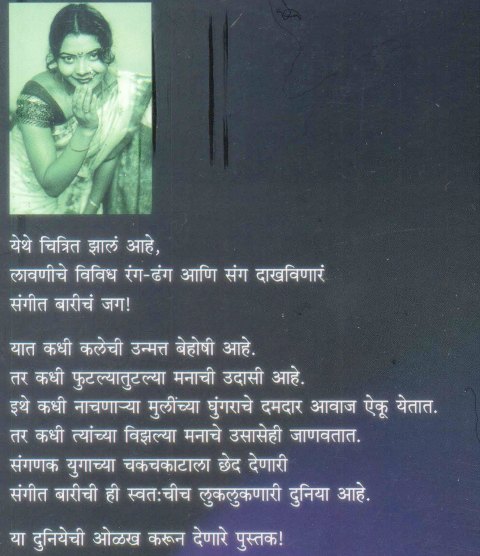 येथे चित्रित झालं आहे,
लावणीचे विविध रंग-ढंग आणि संग दाखविणारं
संगीत बारीचं जग!
यात कधी कलेची उन्मत्त बेहोषी आहे.
तर कधी फुटल्यातुटल्या मनाची उदासी आहे.
इथे कधी नाचणाऱ्या मुलींच्या घुंगराचे दमदार आवाज ऐकू येतात.
तर कधी त्यांच्या विझल्या मनाचे उसासेही जाणवतात.
संगणक युगाच्या चकचकाटाला छेद देणारी
संगीत बारीची ही स्वत:चीच लुकलुकणारी दुनिया आहे.
या दुनियेची ओळख करून देणारे पुस्तक!